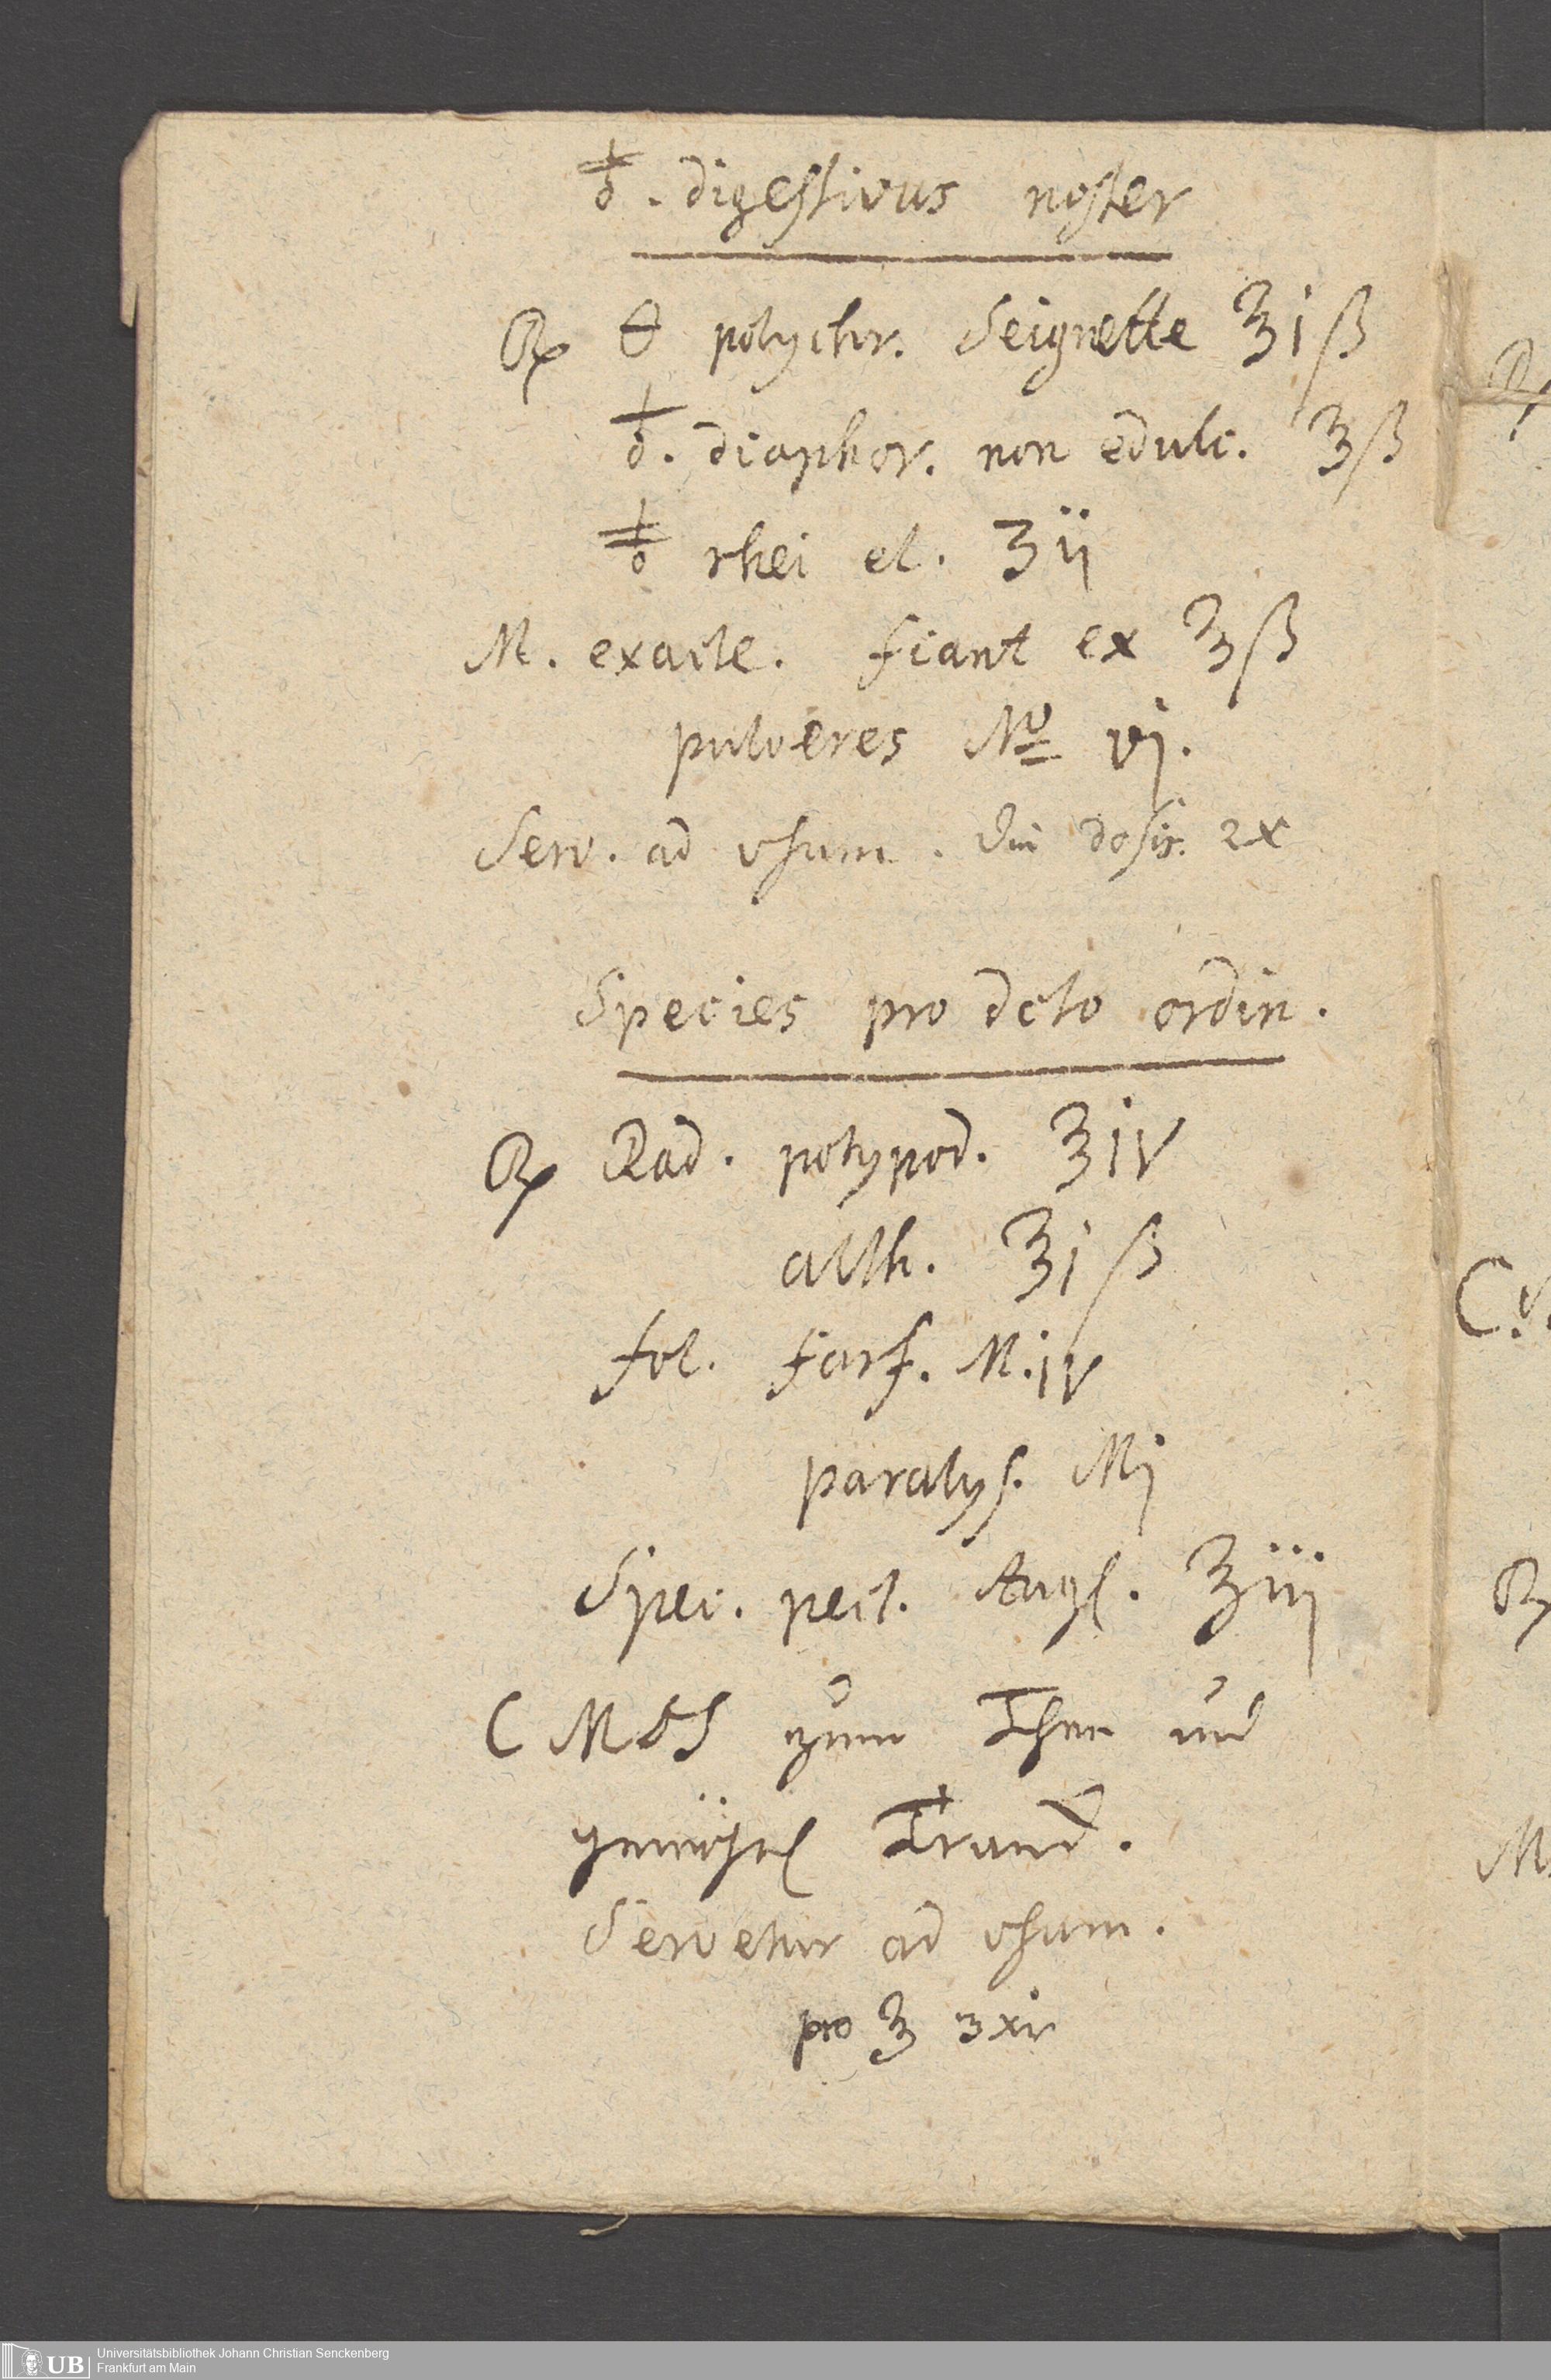 🜿. digestivus noster
℞ 🜔 polychr. Seignette ℥iß
♁. diaphor. non edulc. ℥ß
rhei el. ʒij
M. exacte. fiant ex ℥ß
pulveres No vj.
Serv. ad usum. die dosis. 2x
Species pro dcto ordin.
℞ Rad. polypod. ℥iv
alth. ℥iß
fol. farf. M.iv
paralys. Mj
Spec. pect. Angl. ℥iij
C M d S zum Thee und
Tranck.
Servetur ad usum.
pro ℥
Universitätsbibliothek Johann Christian Senckenberg
Frankfurt am Main
UB